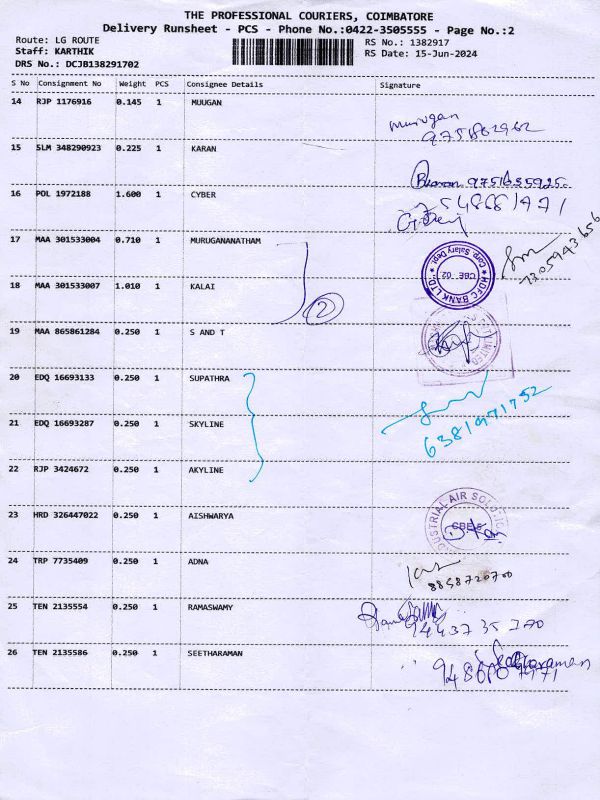 THE PROFESSIONAL COURIERS, COIMBATORE
Delivery Runsheet - PCS - Phone No.:0422-3505555 - Page No.:2
Route: LG ROUTE
RS No.: 1382917
Staff: KARTHIK
RS Date: 15-Jun-2024
DRS No.: DCJB138291702
S No Consignment No Weight PCS Consignee Details Signature
14 RJP 1176916 0.145 1 MUUGAN
Murugan
15 SLM 348290923 0.225 1 KARAN
9751635925
16 POL 1972188 1.600 1 CYBER
17 MAA 301533004 0.710 1 MURUGANANATHAM
HDFC BANK LTD. Corp. Salary Dept.
CBE - 02
7305943656
18 MAA 301533007 1.010 1 KALAI
2
19 MAA 865861284 0.250 1 S AND T
20 EDQ 16693133 0.250 1 SUPATHRA
21 EDQ 16693287 0.250 1 SKYLINE
6381971752
22 RJP 3424672 0.250 1 AKYLINE
23 HRD 326447022 0.250 1 AISHWARYA
INDUSTRIAL AIR SOLUTIONS
24 TRP 7735409 0.250 1 ADNA
8858720700
25 TEN 2135554 0.250 1 RAMASWAMY
9443735270
26 TEN 2135586 0.250 1 SEETHARAMAN